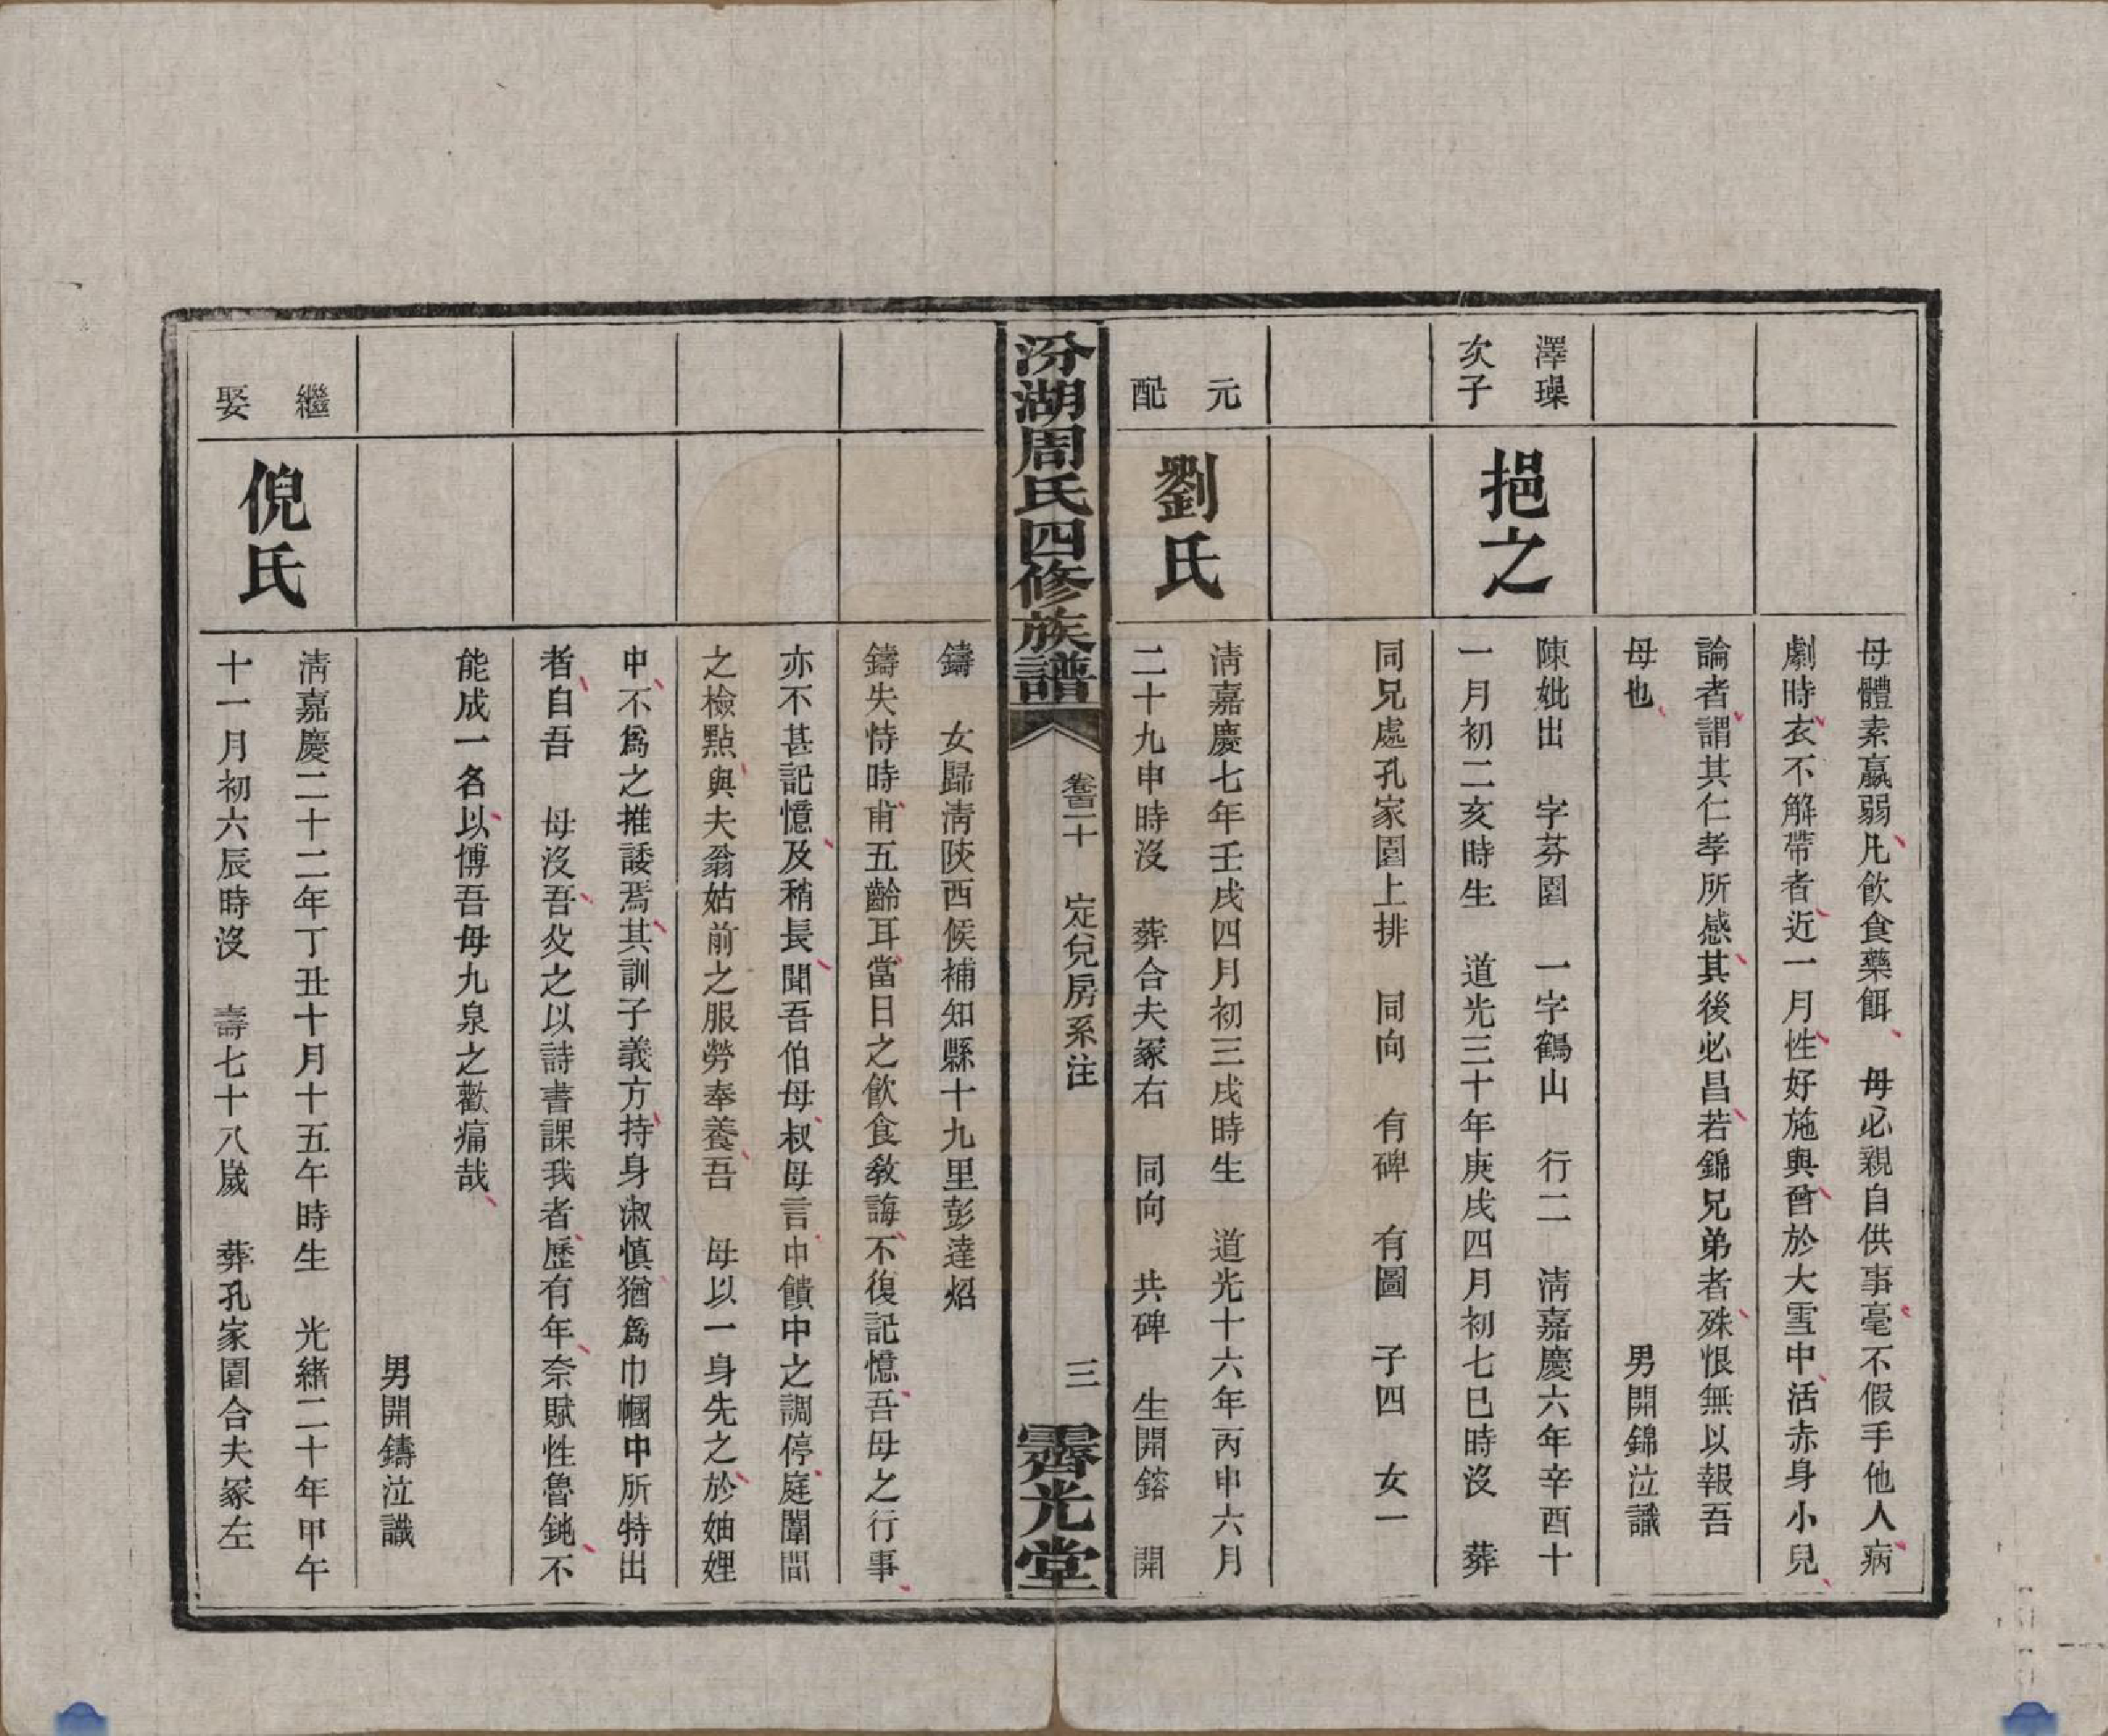 母體素羸弱凡飲食藥餌　母必親自供事毫不假手他人病
劇時衣不解帶者近一月性好施與曾於大雪中活赤身小兒
論者謂其仁孝所感其後必昌若錦兄弟者殊恨無以報吾
母也　男開錦泣識
澤璪
次子
挹之
陳妣出　字芬園　一字鶴山　行二　淸嘉慶六年辛酉十
一月初二亥時生　道光三十年庚戌四月初七巳時沒　葬
同兄處孔家園上排　同向　有碑　有圖　子四　女一
元
配
劉氏
淸嘉慶七年壬戌四月初三戌時生　道光十六年丙申六月
二十九申時沒　葬合夫冢右　同向　共碑　生開鎔　開
汾湖周氏四修族譜　卷三十　定兌房系注　三　霽光堂
鑄　女歸淸陜西候補知縣十九里彭達炤
鑄失恃時甫五齡耳當日之飲食敎誨不復記憶吾母之行事
亦不甚記憶及稍長聞吾伯母叔母言中饋中之調停庭闈間
之檢點與夫翁姑前之服勞奉養吾　母以一身先之於妯娌
中不爲之推諉焉其訓子義方持身淑愼猶爲巾幗中所特出
者自吾　母沒吾父之以詩書課我者歷有年奈賦性魯鈍不
能成一名以傅吾母九泉之歡痛哉
男開鑄泣識
繼
娶
倪氏
淸嘉慶二十二年丁丑十月十五午時生　光緒二十年甲午
十一月初六辰時沒　壽七十八歲　葬孔家園合夫冢左